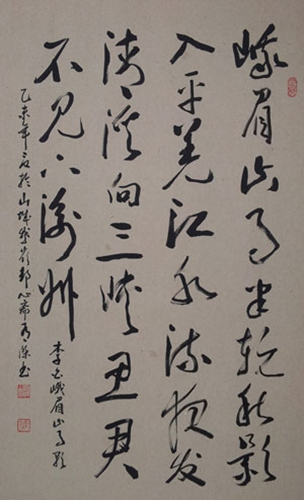 峨眉山月半轮秋影
入平羌江水流夜发
清溪向三峡思君
不见下渝州
李白峨眉山月歌
乙未年於山城心斋